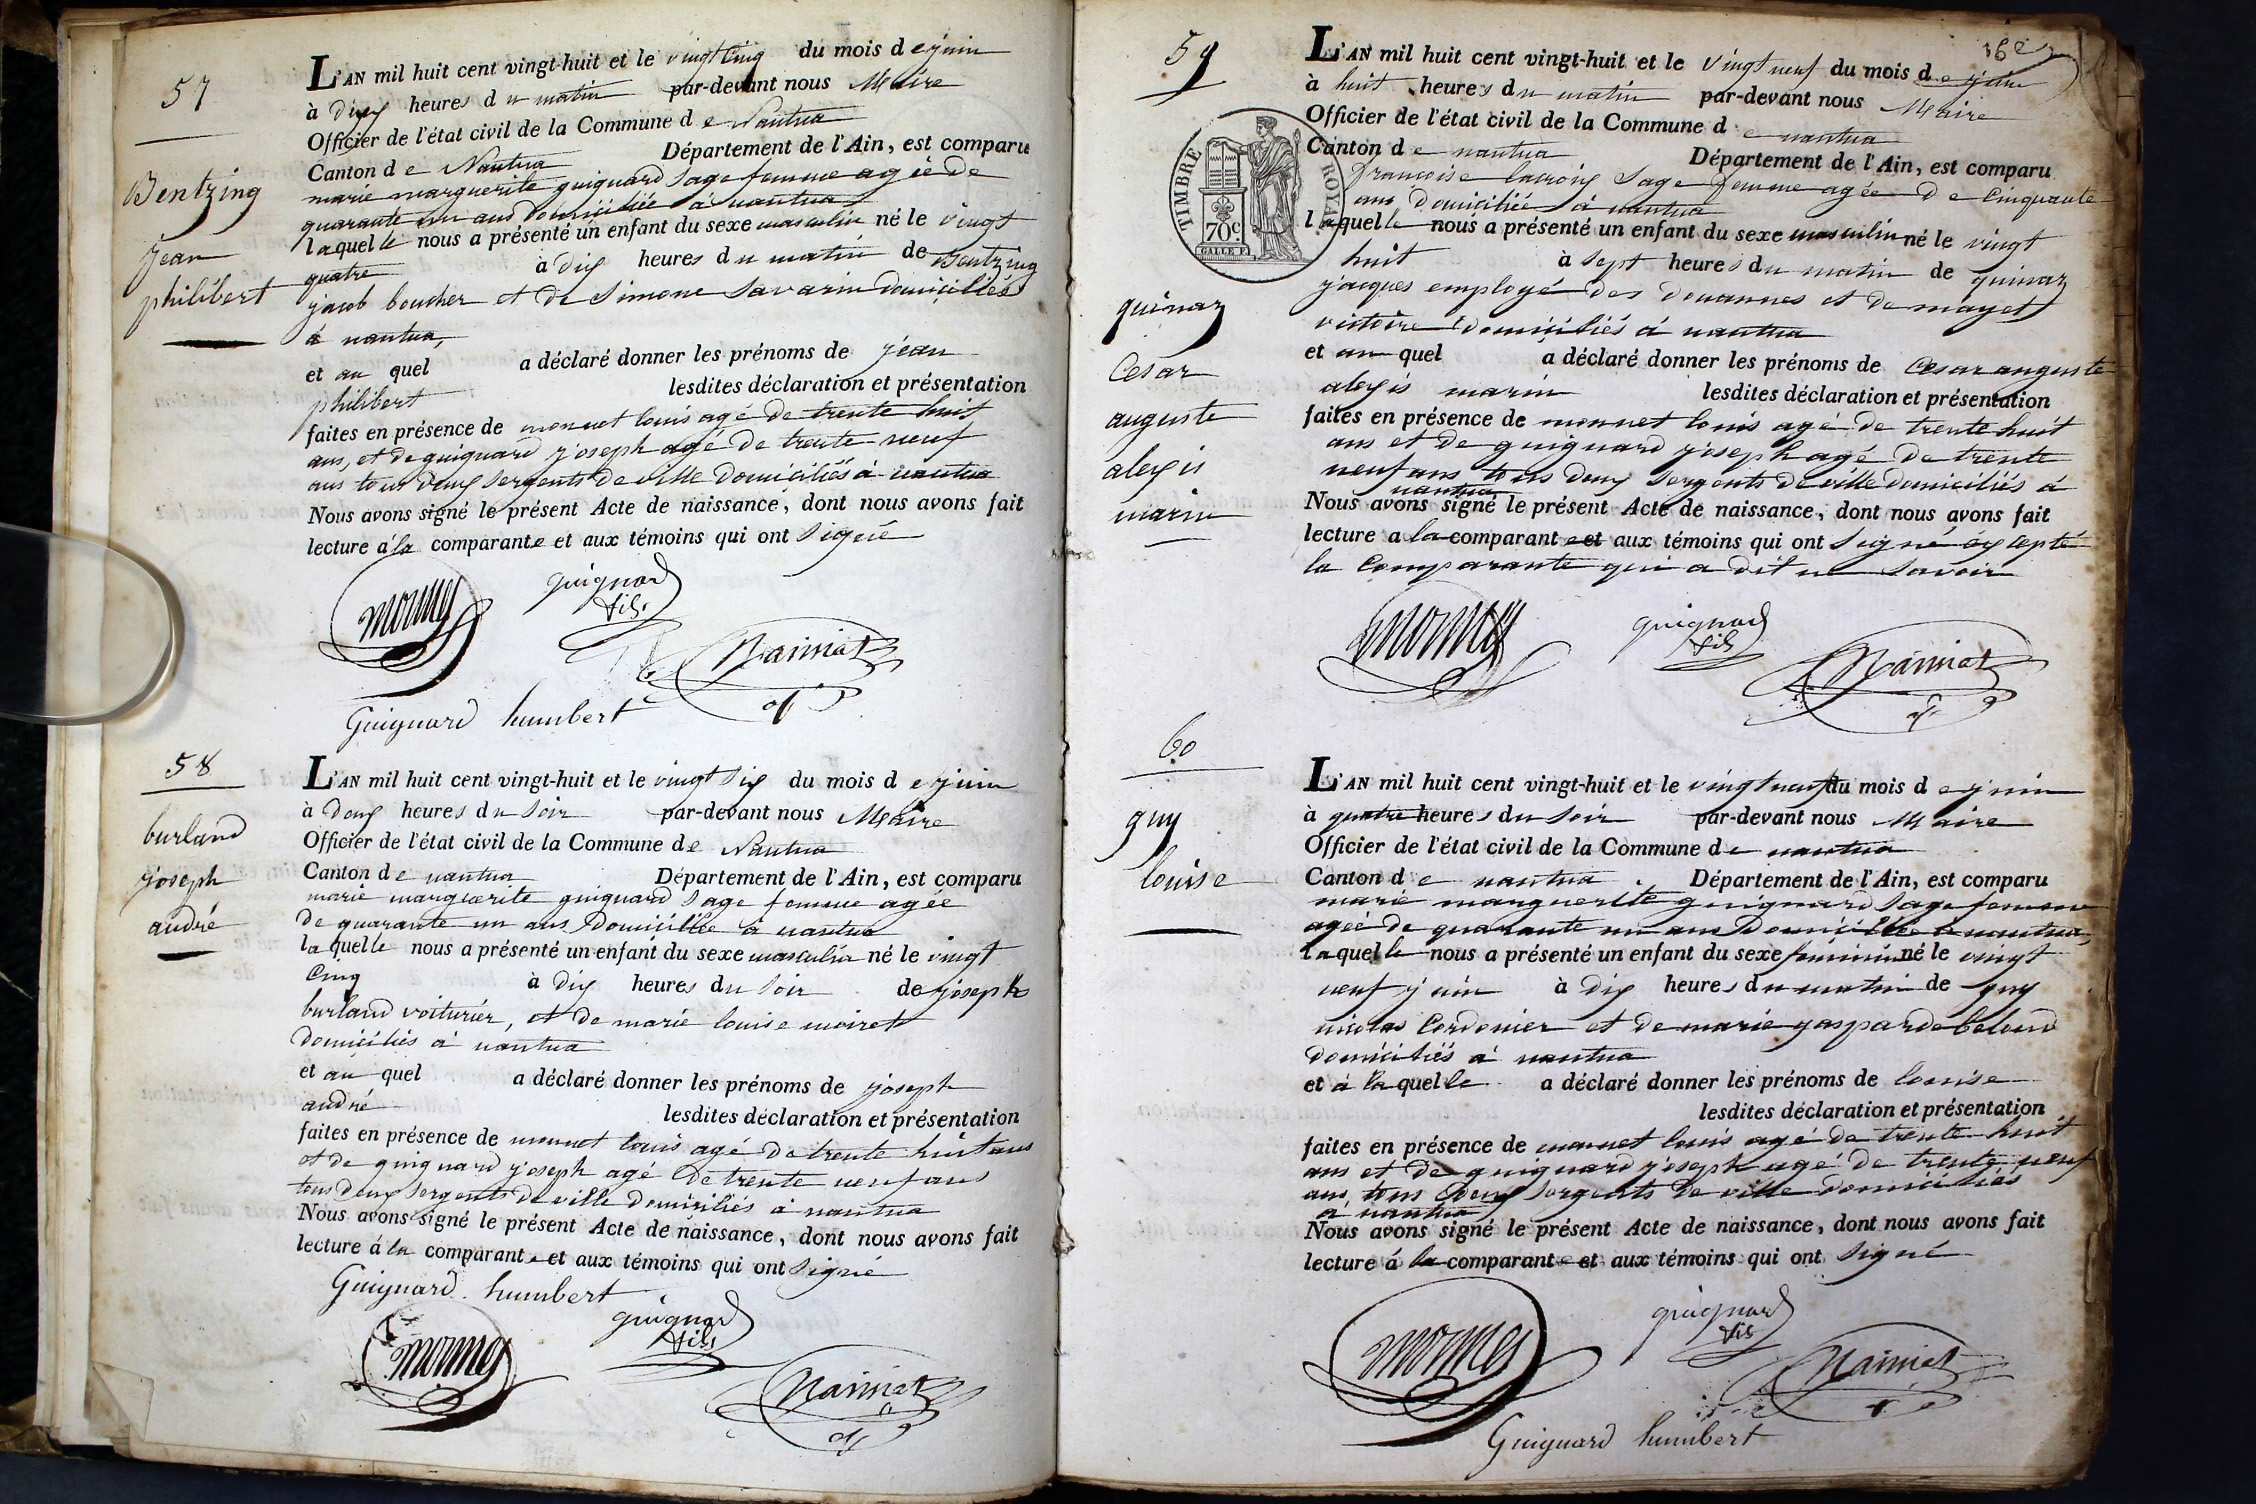 57
Bentzing
jean
philibert
L'AN mil huit cent vingt-huit et le vingt cinq du mois de juin
à dix heures du matin par-devant nous Maire
Officier de l'état civil de la Commune de Nantua
Canton de Nantua Département de l'Ain, est comparu
marie marguerite guignard sage femme agée de
quarante un ans domiciliée à nantua
laquelle nous a présenté un enfant du sexe masculin né le vingt
quatre à dix heures du matin de Bentzing
jacob boucher et de Simone Savarin domiciliés
à nantua,
et au quel a déclaré donner les prénoms de jean
philibert lesdites déclaration et présentation
faites en présence de monnet louis agé de trente huit
ans, et de guignard joseph agé de trente neuf
ans tous deux sergents de ville domiciliés à nantua
Nous avons signé le présent Acte de naissance, dont nous avons fait
lecture à la comparante et aux témoins qui ont signé
guignard
fils
Guignard humbert
58
burland
joseph
andré
L'AN mil huit cent vingt-huit et le vingt six du mois de juin
à deux heures du soir par-devant nous Maire
Officier de l'état civil de la Commune de Nantua
Canton de nantua Département de l'Ain, est comparu
marie marguerite guignard sage femme agée
de quarante un ans domiciliée à nantua
laquelle nous a présenté un enfant du sexe masculin né le vingt
cinq à dix heures du soir de joseph
burland voiturier, et de marie louise moiret
domiciliés à nantua
et au quel a déclaré donner les prénoms de joseph
andré lesdites déclaration et présentation
faites en présence de monnet louis agé de trente huit ans
et de guignard joseph agé de trente neuf ans
tous deux sergents de ville domiciliés à nantua
Nous avons signé le présent Acte de naissance, dont nous avons fait
lecture à la comparante et aux témoins qui ont signé
Guignard humbert
guignard
fils
59
TIMBRE ROYAL
70c
GALLE F.
quinaz
Cesar
auguste
alexis
marin
36e
L'AN mil huit cent vingt-huit et le vingt neuf du mois de juin
à huit heures du matin par-devant nous Maire
Officier de l'état civil de la Commune de nantua
Canton de nantua Département de l'Ain, est comparu
françoise lacroix sage femme agée de cinquante
ans domiciliée à nantua
laquelle nous a présenté un enfant du sexe masculin né le vingt
huit à sept heures du matin de quinaz
jacques employé des douannes et de mayet
victoire domiciliés à nantua
et au quel a déclaré donner les prénoms de Cesar auguste
alexis marin lesdites déclaration et présentation
faites en présence de monnet louis agé de trente huit
ans et de guignard joseph agé de trente
neuf ans tous deux sergents de ville domiciliés à
nantua
Nous avons signé le présent Acte de naissance, dont nous avons fait
lecture a la comparante et aux témoins qui ont signé excepté
la comparante qui a dit ne savoir
guignard
fils
60
guy
louise
L'AN mil huit cent vingt-huit et le vingt neuf du mois de juin
à quatre heures du soir par-devant nous Maire
Officier de l'état civil de la Commune de nantua
Canton de nantua Département de l'Ain, est comparu
marie marguerite guignard sage femme
agée de quarante un ans domiciliée à nantua,
laquelle nous a présenté un enfant du sexe féminin né le vingt
neuf juin à dix heures du matin de guy
nicolas cordonier et de marie gasparde belond
domiciliés à nantua
et à laquelle a déclaré donner les prénoms de louise
lesdites déclaration et présentation
faites en présence de monnet louis agé de trente huit
ans et de guignard joseph agé de trente neuf
ans, tous deux sergents de ville domiciliés
à nantua
Nous avons signé le présent Acte de naissance, dont nous avons fait
lecture à la comparante et aux témoins qui ont signé
guignard
fils
Guignard humbert